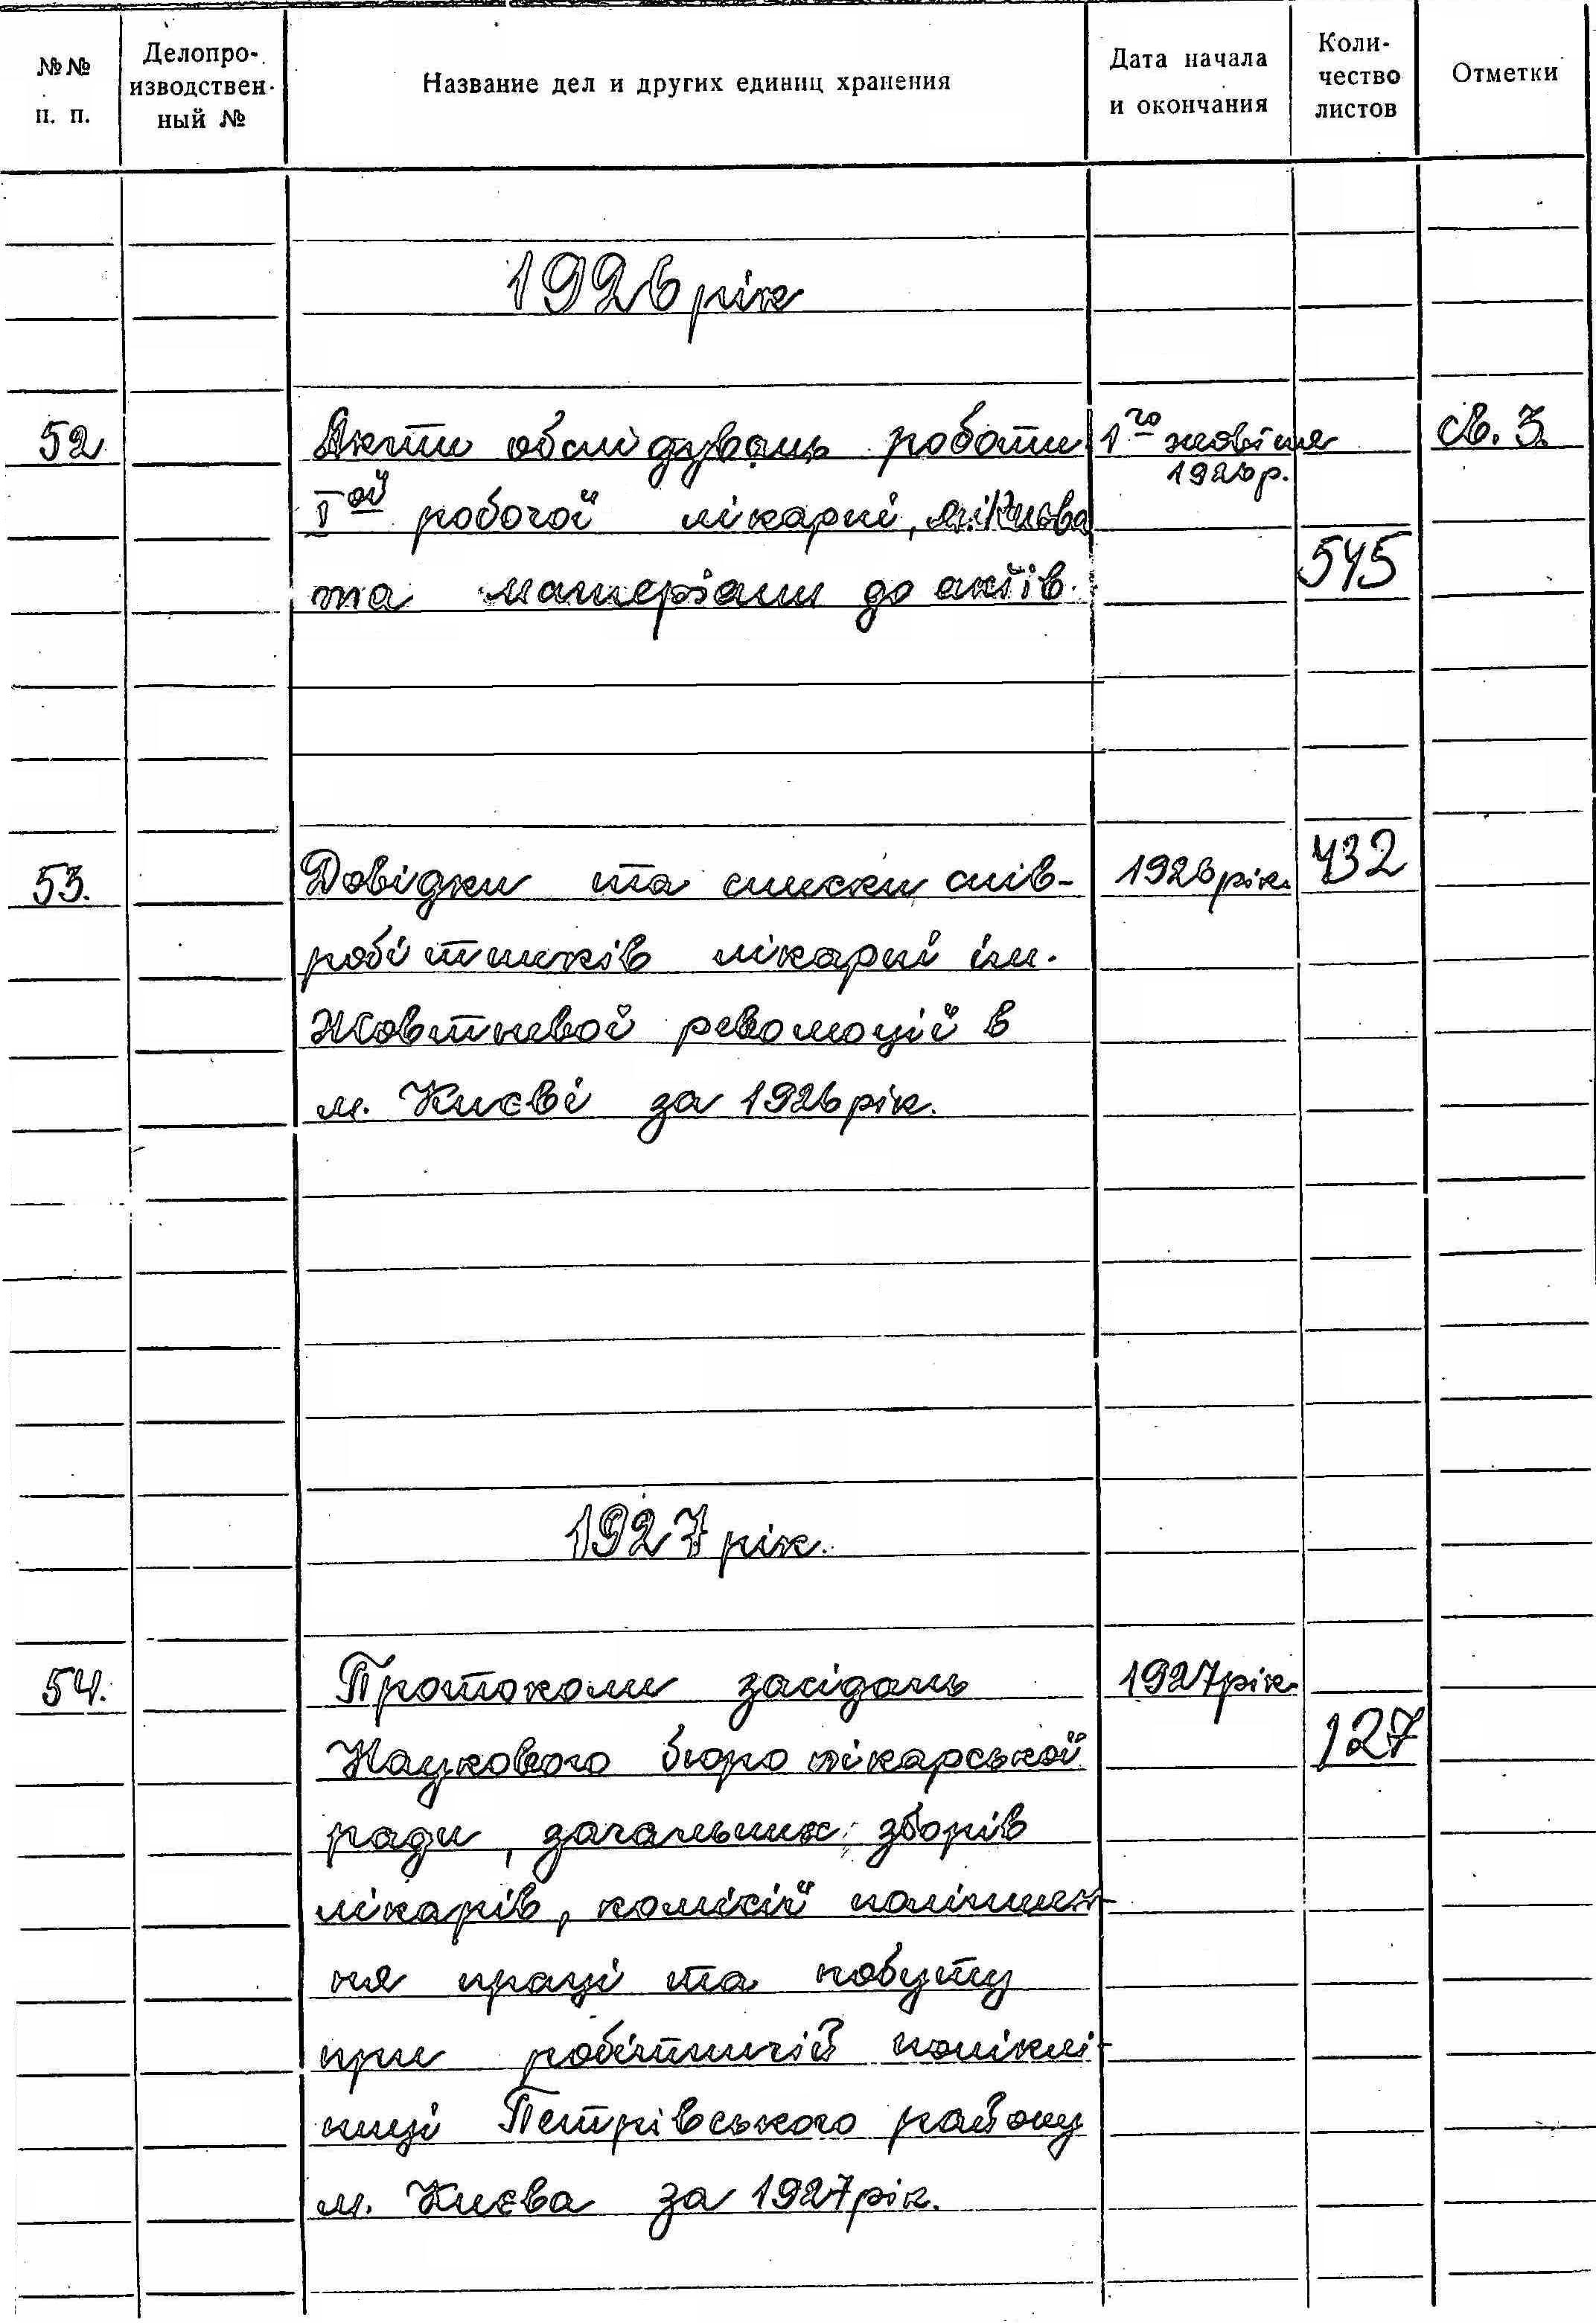 №№ п. п.
Делопро-
изводствен-
ный №
Название дел и других единиц хранения
Дата начала
и окончания
Коли-
чество
листов
Отметки
1926 рік
52 Акти обслідувань роботи 1го жовтня св. 3.
1926 р.
Iой робочої лікарні, м. Києва
545
та матеріали до актів.
53. Довідки та списки спів- 1926 рік. 432
робітників лікарні ім.
Жовтневої революції в
м. Києві за 1926 рік.
1927 рік.
54. Протоколи засідань 1927 рік.
Наукового бюро лікарської 127
ради, загальних зборів
лікарів, комісії поліпшен-
ня праці та побуту
при робітничій полiклі-
ниці Петрівського району
м. Києва за 1927 рік.